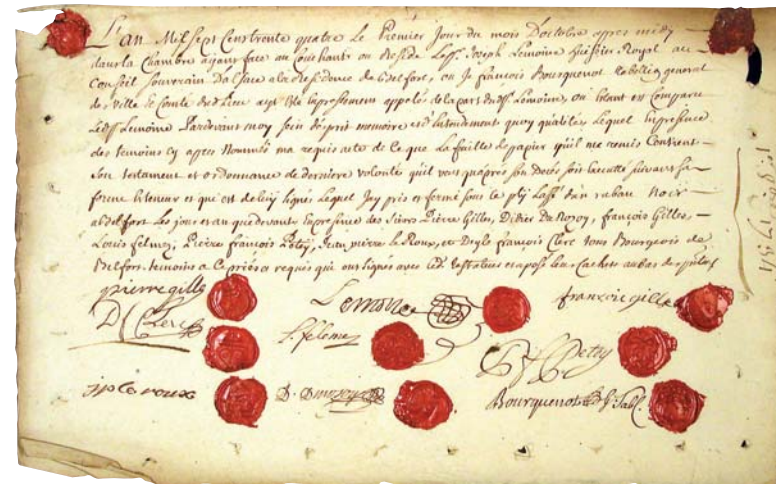 L'an Mil sept Cens trente quatre Le Premier Jour du mois D'octobre apres midy
dans la Chambre ayant face au Couchant ou Reside Led. Joseph Lemoine huissier Royal au
Conseil Souverain D'alsace a la Residence de belfort, ou Je françois Bourquenot tabellion general
de Ville et Comté dud. Lieu ayt été Expressement appelé de la part dud. Lemoine, ou Etant est Comparu
Led. Lemoine Pardevant moy sain d'esprit memoire et Entendement quoy qu'alité, Lequel En presence
des temoins cy apres Nommés ma requis acte de ce que La feuille de papier qu'il me remis Contient
son testament et ordonnance de derniere volonté qu'il veut qu'après son Decès soit Executté suivant sa
forme et teneur et qui est de luy signé Lequel Jay pris et fermé sous le ply d'un ruban Noir
a belfort Les jour et an que devant En presence des Sieurs Pierre Gilles, Didier De Rozoy, françois Gilles,
Louis felmez, Pierre françois Petey, Jean pierre le Roux, et Deyle françois Clerc tous Bourgeois de
Belfort temoins a Ce priés et requis qui ont signés avec led. testateur et aposé leur Cachets au bas des présentes
pierre gille
Lemoine
francois gille
D f Clerc
L. felemez
P f Petey
jp le roux
Bourquenot G. Tabl.